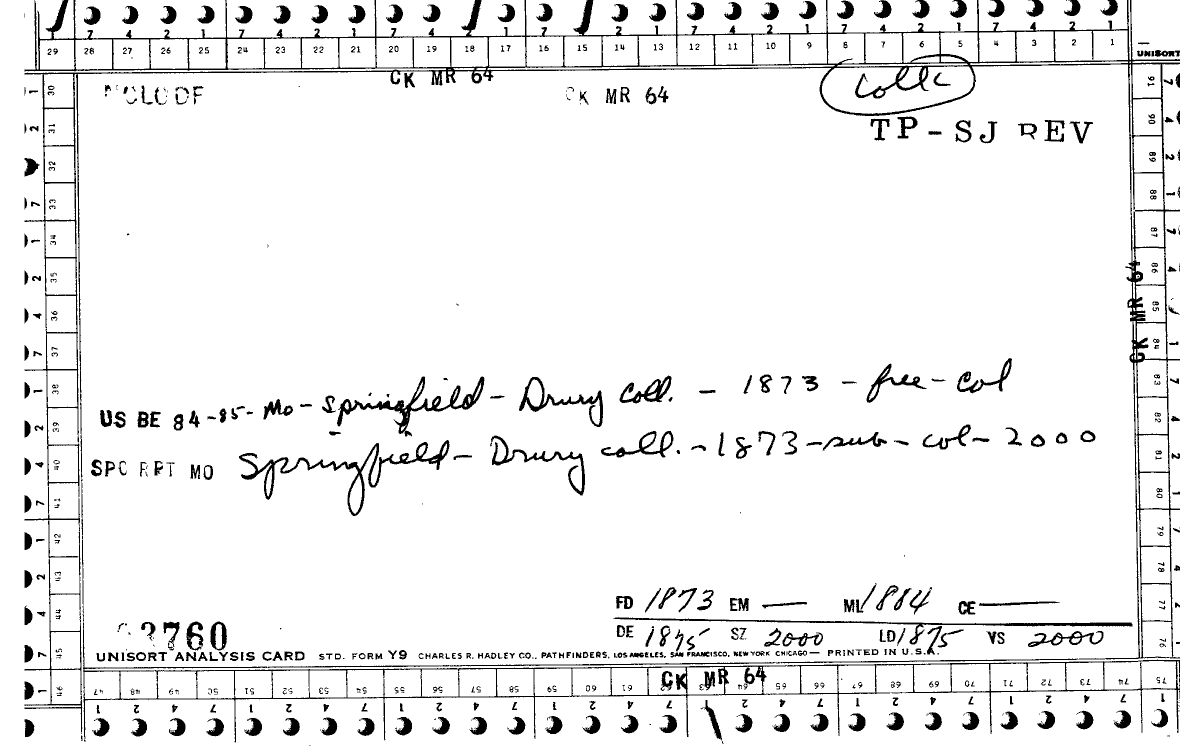 7 4 2 1 7 4 2 1 7 4 2 1 7 2 1 7 4 2 1 7 4 2 1 7 4 2 1
29 28 27 26 25 24 23 22 21 20 19 18 17 16 15 14 13 12 11 10 9 8 7 6 5 4 3 2 1
UNISORT
CK MR 64
CK MR 64
Colle
TP-SJ REV
1 30
2 31
32
7 33
1 34
2 35
4 36
7 37
1 38
2 39
4 40
7 41
1 42
2 43
4 44
7 45
1 46
91
90
89
88
87
86
85
84
83
82
81
80
79
78
77
76
CK MR 64
US BE 84-85- Mo - Springfield - Drury Coll. - 1873 - free - Col
SPC RPT MO Springfield - Drury coll. - 1873 - sub - col - 2000
FD 1873 EM — ML 1884 CE —
DE 1875 SZ 2000 LD 1875 VS 2000
3760
UNISORT ANALYSIS CARD STD. FORM Y9 CHARLES R. HADLEY CO., PATHFINDERS, LOS ANGELES, SAN FRANCISCO, NEW YORK CHICAGO — PRINTED IN U.S.A.
CK MR 64
47 48 49 50 51 52 53 54 55 56 57 58 59 60 61 62 63 64 65 66 67 68 69 70 71 72 73 74 75
1 2 4 7 1 2 4 7 1 2 4 7 1 2 4 7 1 2 4 7 1 2 4 7 1 2 4 7 1